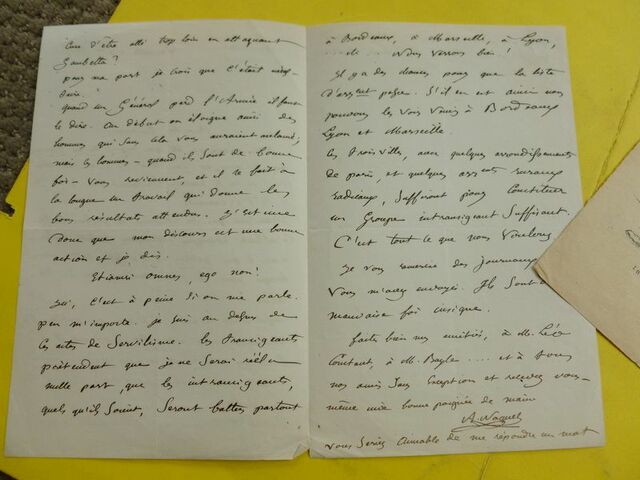 d'être allé trop loin en attaquant
Gambetta?
pour ma part je crois que c'était néces-
saire!
quand un Général perd l'Armée il faut
le dire. Au début on éloigne ainsi des
hommes qui sans cela vous auraient acclamé,
mais les hommes – quand ils sont de bonne
foi – vous reviennent, et il se fait à
la longue un travail qui donne les
bons résultats attendus. J'estime
donc que mon discours est une bonne
action et je dis.
Etiamsi omnes, ego non!
Ici, c'est à peine si on me parle.
peu m'importe. je suis au dessus de
ces actes de Servilisme. les
prétendent que je ne serai réélu
nulle part, que les intransigeants,
quels qu'ils soient, seront battus partout
à Bordeaux, à Marseille, à Lyon,
Nous verrons bien!
Il y a des chances pour que la liste
d'arrent passe. S'il en est ainsi nous
pensons les Vous Voir à Bordeaux
Lyon et Marseille.
Ces trois villes, avec quelques arrondissements
de paris, et quelques arrents ruraux
radicaux, suffiront pour constituer
un Groupe intransigeant suffisant.
C'est tout ce que nous voulons
Je vous remercie des journaux
Vous m'avez envoyés. Ils sont
mauvaise foi cynique.
faites bien nos amitiés, à M. Léo
Constant, à M. Bayle .... et à tous
nos amis sans exception et recevez vous-
même une bonne poignée de main
A. Naquet
Vous seriez aimable de me répondre un mot